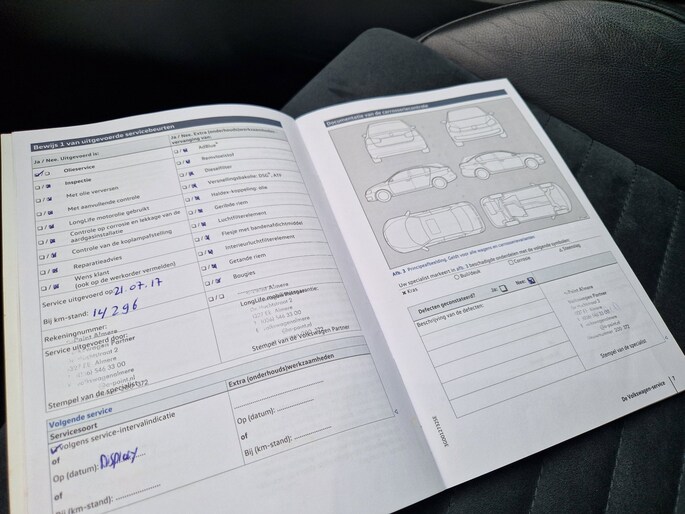 Bewijs 1 van uitgevoerde servicebeurten
Ja / Nee. Uitgevoerd is:
Olieservice
Inspectie
Met olie verversen
Met aanvullende controle
LongLife motorolie gebruikt
Controle op corrosie en lekkage van de
aardgasinstallatie
Controle van de koplampafstelling
Reparatieadvies
Wens klant
(ook op de werkorder vermelden)
Service uitgevoerd op: 21.07.17
Bij km-stand: 14.296
Rekeningnummer:
Service uitgevoerd door:
Stempel van de specialist:
Ja / Nee. Extra (onderhouds)werkzaamheden,
vervanging van:
AdBlue®
Remvloeistof
Dieselfilter
Versnellingsbakolie: DSG®,
Haldex-koppeling: olie
Geribde riem
Luchtfilterelement
Flesje met bandenafdichtmiddel
Interieurluchtfilterelement
Bougies
LongLife-mobiliteitsgarantie:
Stempel van de Volkswagen Partner
Volgende service
Servicesoort
Volgens service-intervalindicatie
of
Op (datum): Display
of
Bij (km-stand):
Extra (onderhouds)werkzaamheden
Op (datum):
of
Bij (km-stand):
Documentatie van de carrosseriecontrole
Afb. 3 Principeafbeelding. Geldt voor alle wagens en carrosserievarianten.
Uw specialist markeert in afb. 3 beschadigde onderdelen met de volgende symbolen:
× Kras
○ Buil/deuk
Corrosie
Steenslag
Defecten geconstateerd?
Ja:
Nee:
Beschrijving van de defecten:
Point Almere
Volkswagen Partner
Stempel van de specialist
De Volkswagen-service
7